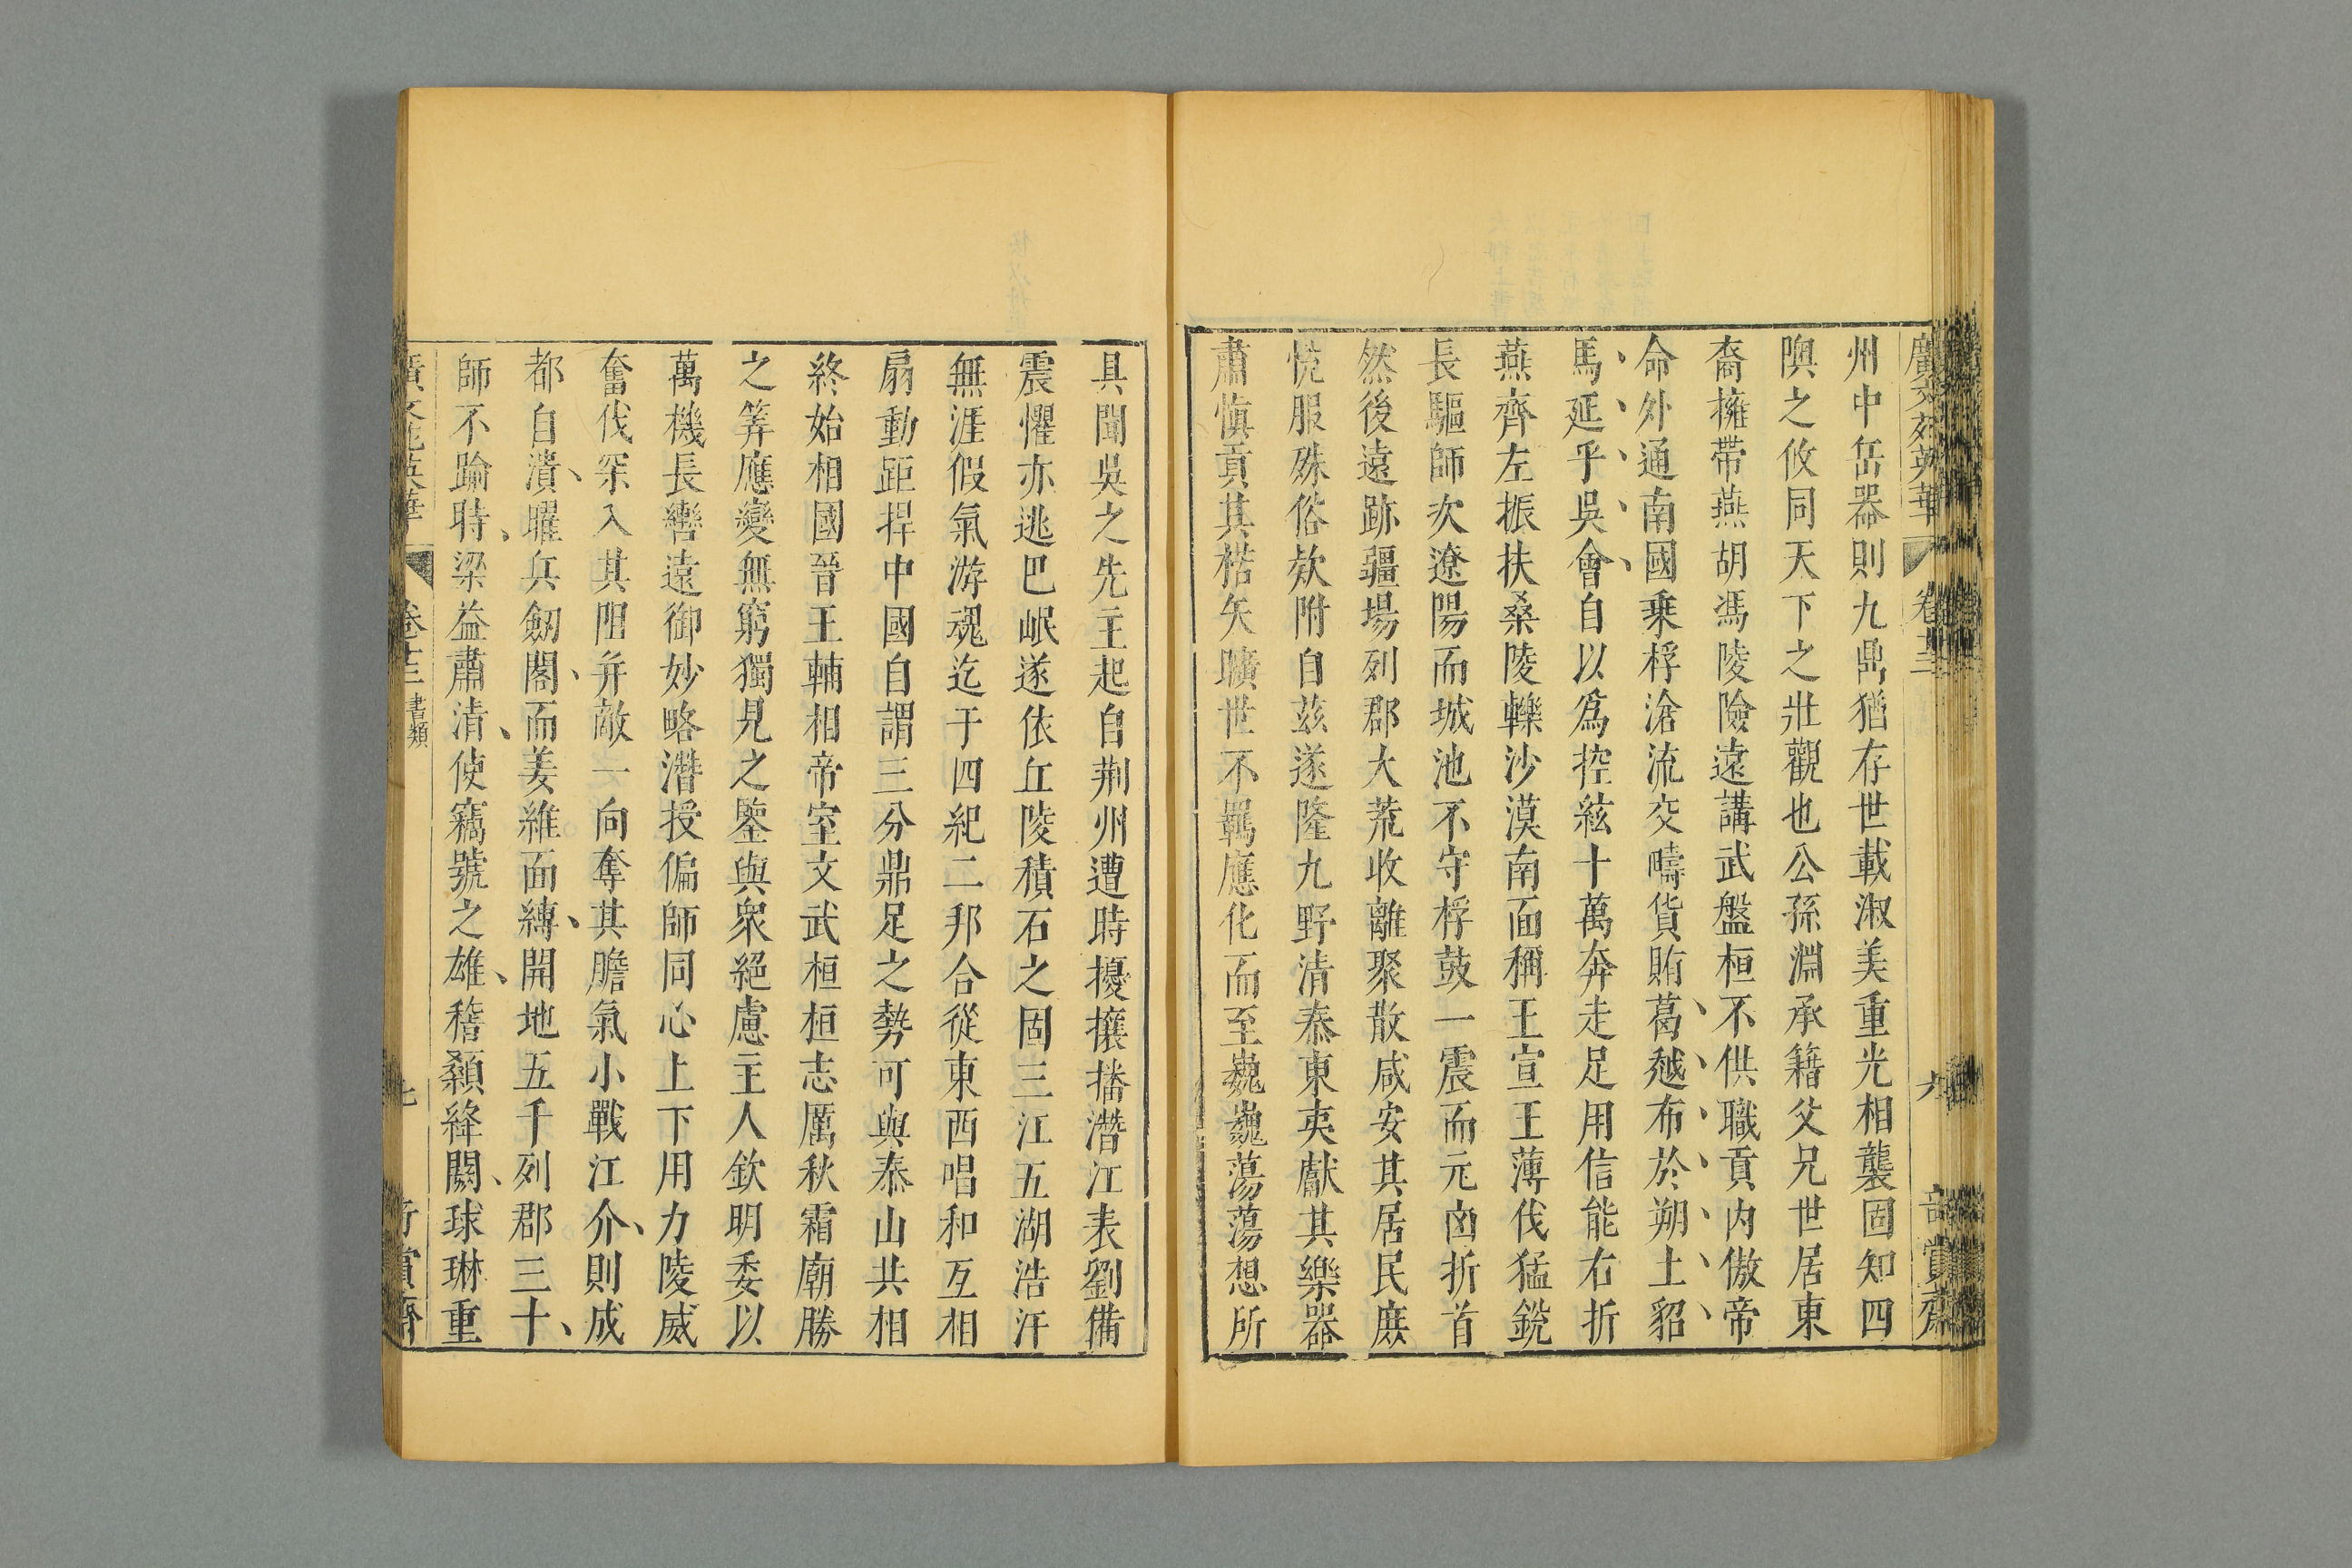 州中岳器則九鼎猶存世載淑美重光相襲固知四
隩之攸同天下之壯觀也公孫淵承籍父兄世居東
裔擁帶燕胡馮陵險遠講武盤桓不供職貢内傲帝
命外通南國乗桴滄流交疇貨賄葛越布於朔土貂
馬延乎吳會自以爲控絃十萬奔走足用信能右折
燕齊左振扶桑陵轢沙漠南面稱王宣王薄伐猛銳
長驅師次遼陽而城池不守桴鼓一震而元凶折首
然後遠跡疆場列郡大荒收離聚散咸安其居民庶
悅服殊俗款附自兹遂隆九野清泰東夷獻其樂器
肅慎貢其楛矢曠世不羈應化而至巍巍蕩蕩想所
具聞吳之先主起自荆州遭時擾攘播潛江表劉備
震懼亦逃巴岷遂依丘陵積石之固三江五湖浩汗
無涯假氣游魂迄于四紀二邦合從東西唱和互相
扇動距捍中國自謂三分鼎足之勢可與泰山共相
終始相國晉王輔相帝室文武桓桓志厲秋霜廟勝
之筭應變無窮獨見之鑒與衆絕慮主人欽明委以
萬機長轡遠御妙略潛授偏師同心上下用力陵威
奮伐罙入其阻并敵一向奪其膽氣小戰江介則成
都自潰曜兵劒閣而姜維面縛開地五千列郡三十
師不踰時梁益肅清使竊號之雄稽顙絳闕球琳重
卷十三 書類 七